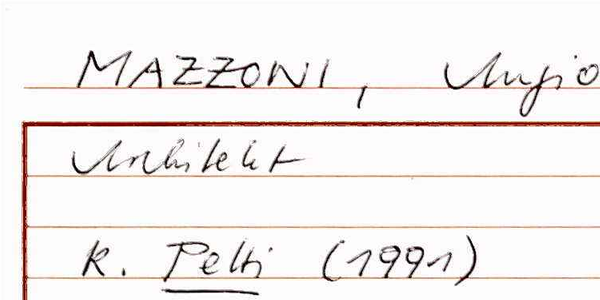 MAZZONI, Angio
Architekt
K. (1991)